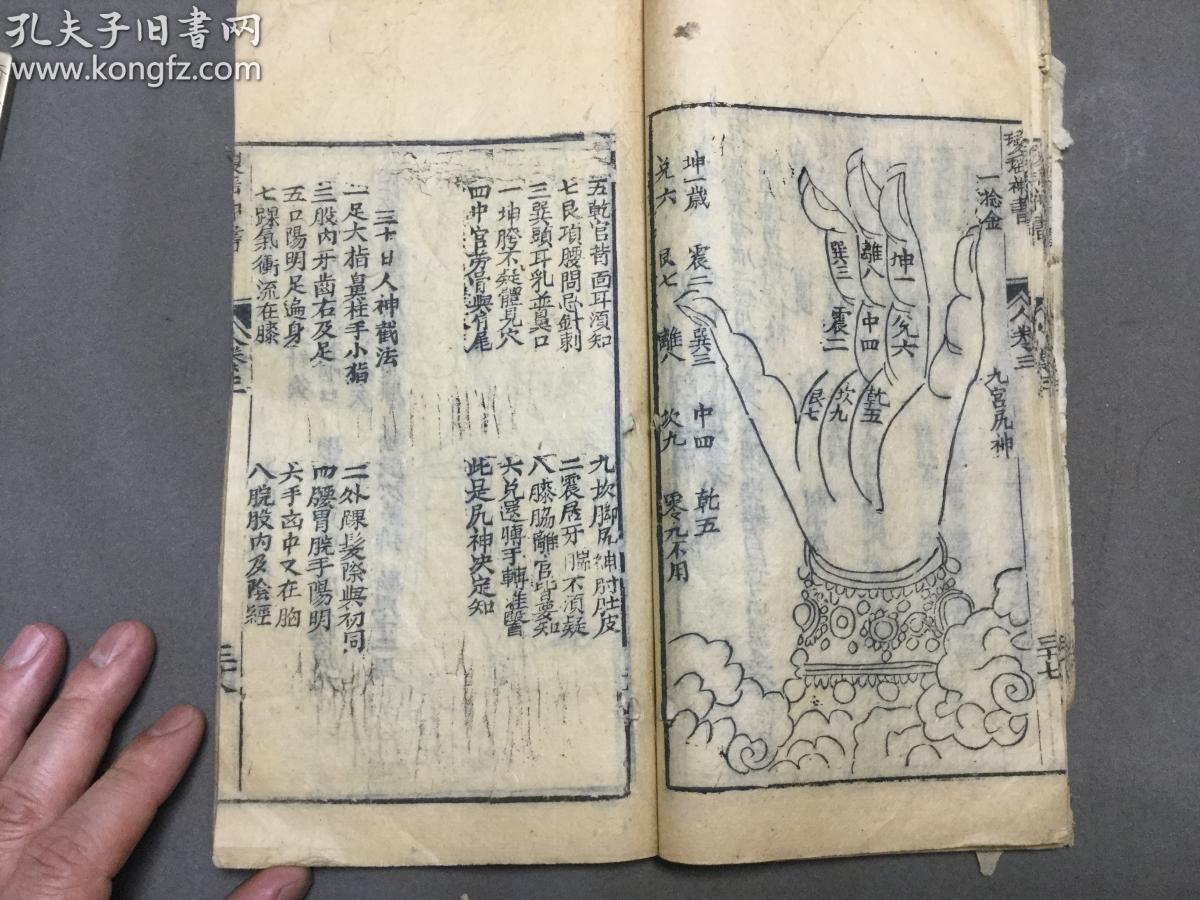 孔夫子旧书网
www.kongfz.com
瓊瑤神書
卷三
三十七
一捻金
九宮尻神
坤一
兌六
乾五
離八
中四
坎九
巽三
震二
艮七
坤一歲 震二 巽三 中四 乾五
兌六 艮七 離八 坎九 零九不用
五乾官背面耳須知
九坎脚尻神肘肚皮
七艮項腰問忌針刺
二震居牙腨不須疑
三巽頭耳乳並鼻口
八膝脇離官皆要知
一坤膀不疑體見穴
六兌還膊手轉
四中官旁骨與肩尾
此是尻神决定知
三十日人神截法
一足大指鼻柱手小指
二外踝髮際與初同
三股內牙齒右及足
四腰胃脘手陽明
五口陽明足遍身
六手 中又在胸
七踝氣衝流在膝
八脘股內及陰經
卷三